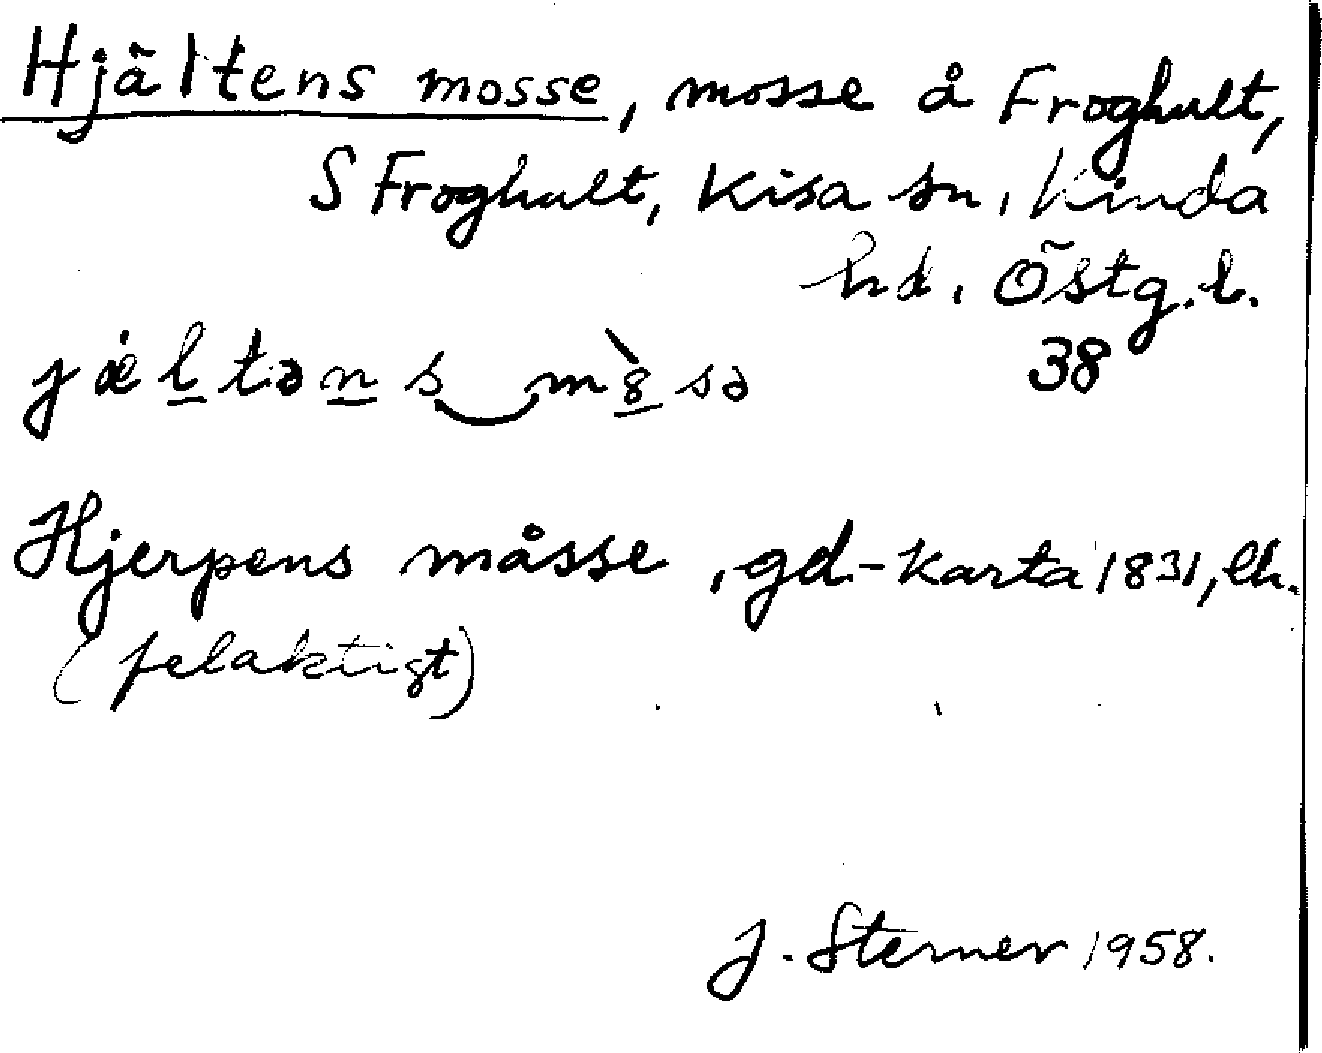 Hjältens mosse, mosse å Froghult,
S Froghult, Kisa sn, Kinda
hd, Östg.l.
jæ̀ltəns‿m8̀sə 38
Hjerpens måsse, gd-karta 1831, lh.
(felaktigt)
J. Sterner 1958.